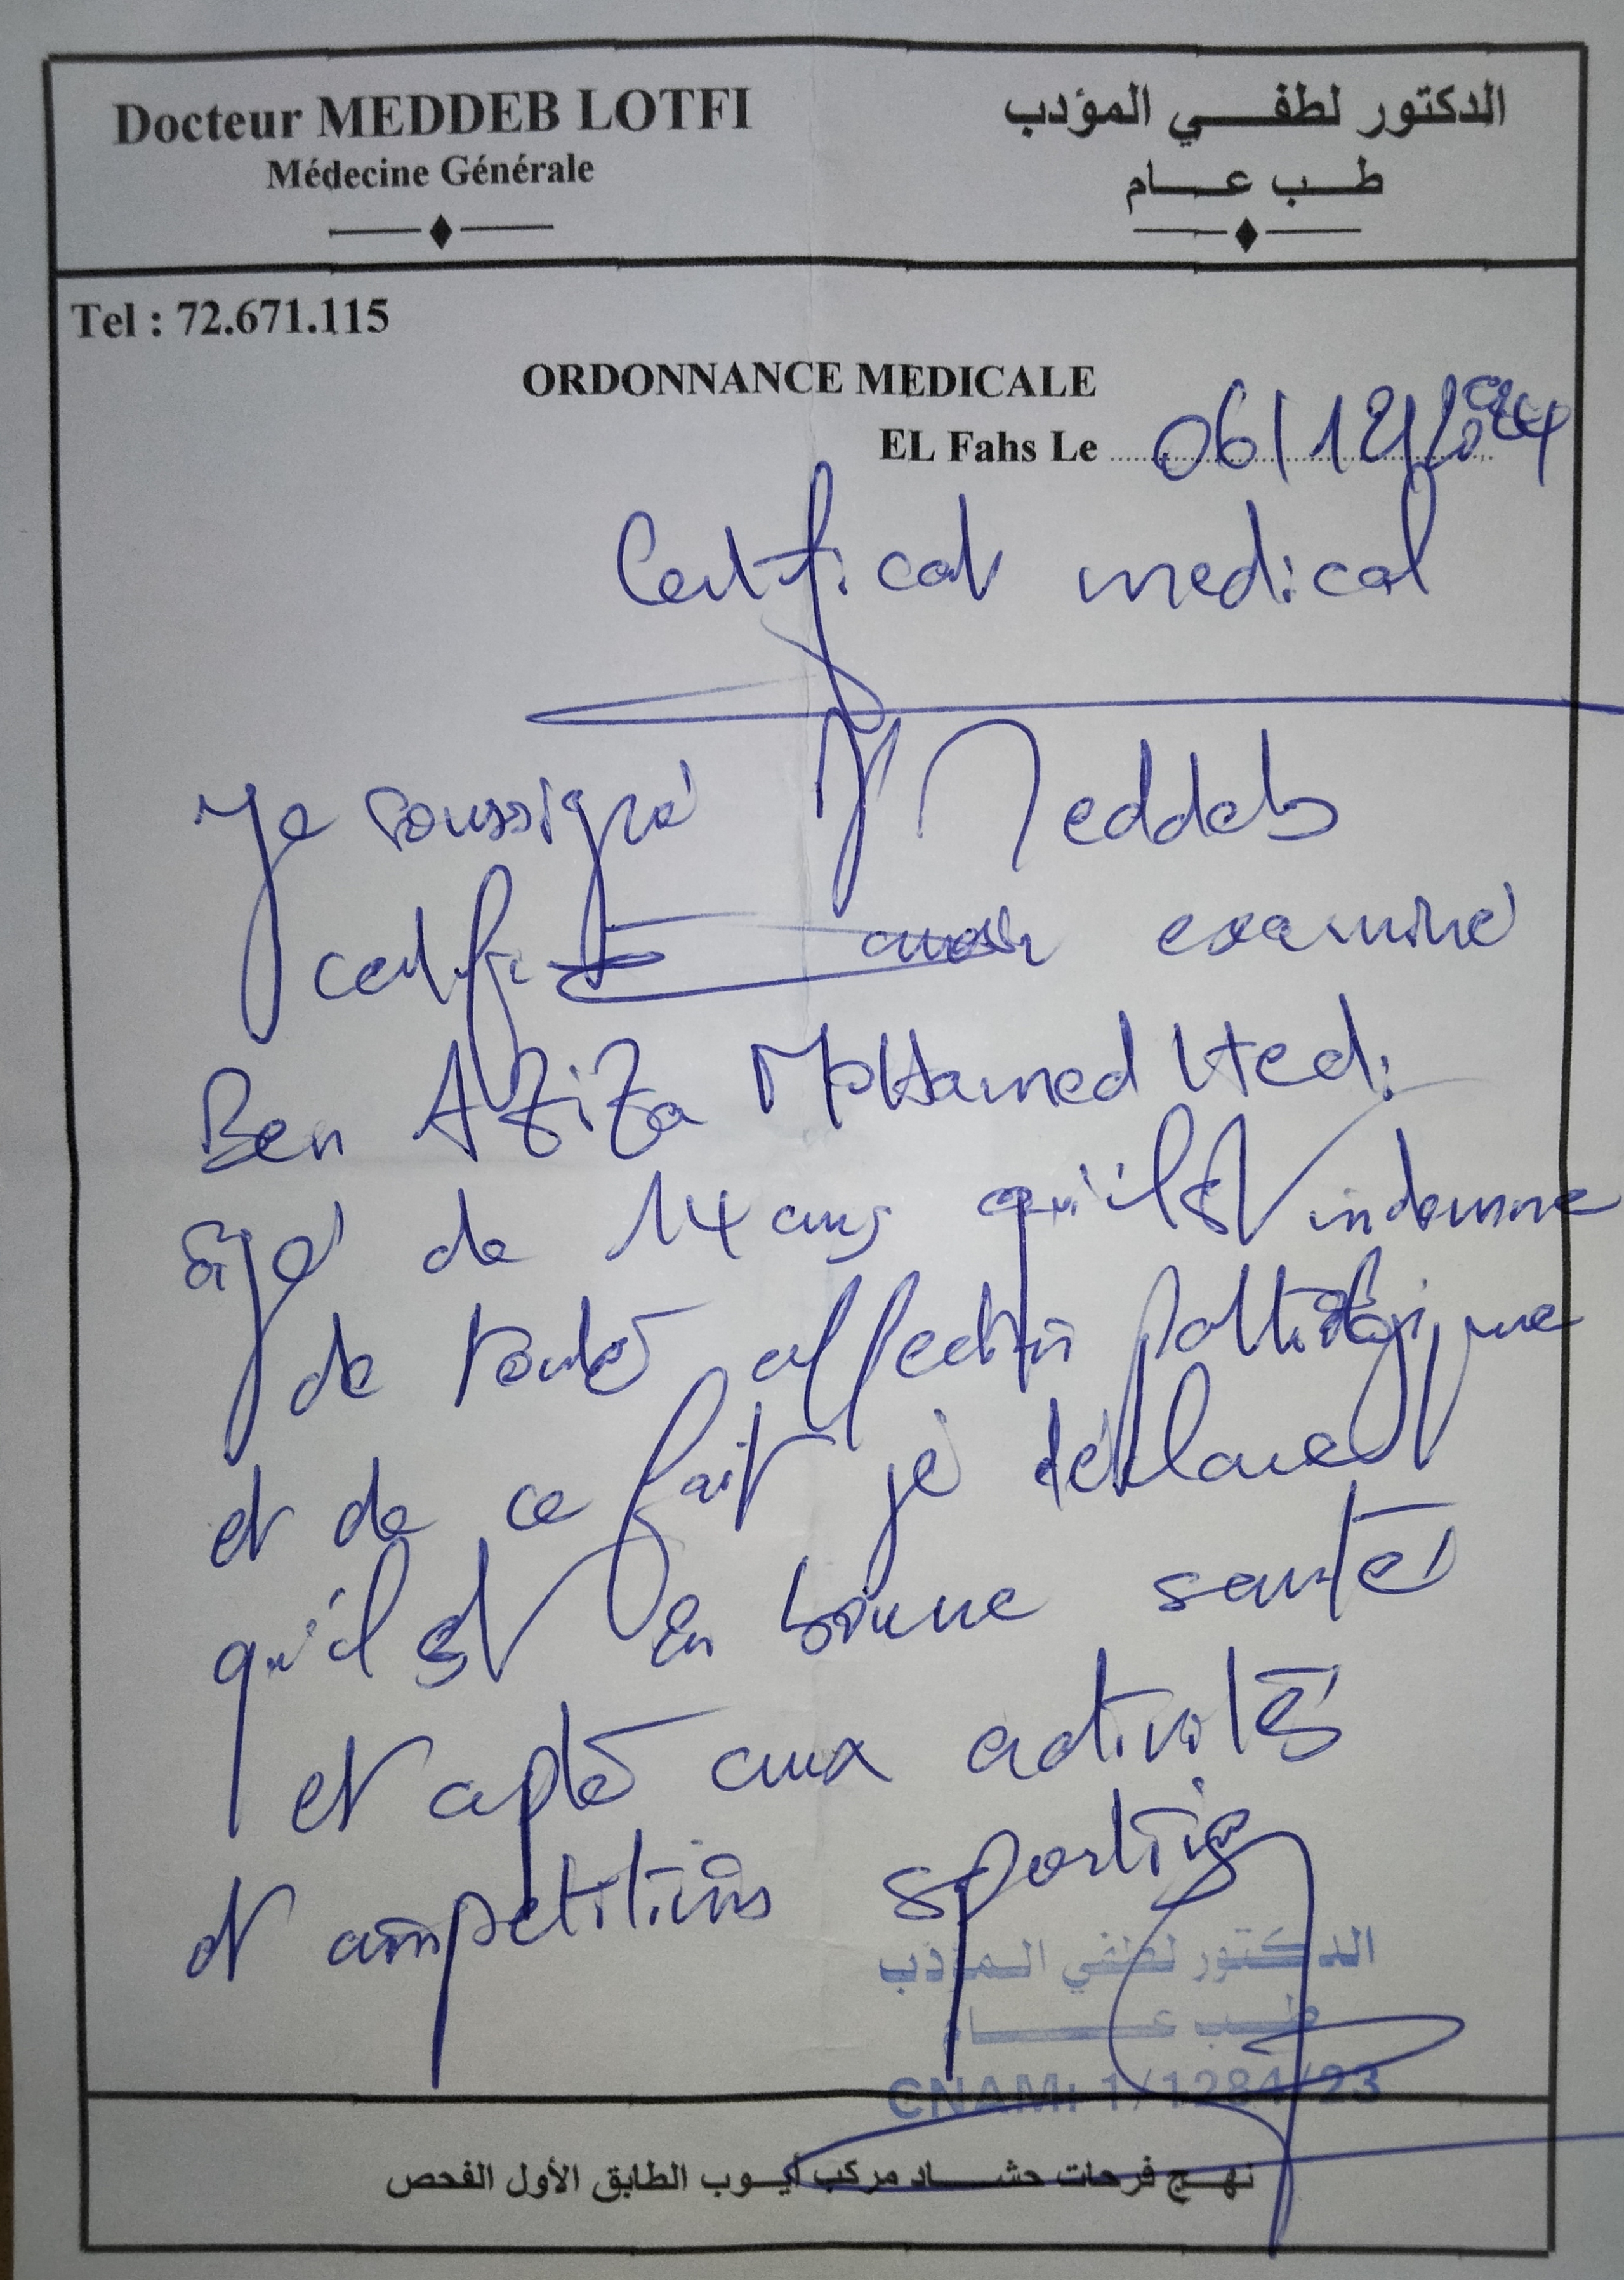 Docteur MEDDEB LOTFI
Médecine Générale
الدكتور لطفي المؤدب
طب عام
Tel : 72.671.115
ORDONNANCE MEDICALE
EL Fahs Le 06/12/2024
Certificat medical
Je soussigné Dr Meddeb
certifie avoir examiné
Ben AZiZa MoHamed Hedi
âgé de 14 ans qu'il est indemne
de toute affection pathologique
et de ce fait je déclare
qu'il est en bonne santé
et apte aux activités
et compétitions sportives
الدكتور لطفي المؤدب
طب عام
CNAM: 1/1284/23
نهج فرحات حشاد مركب أيوب الطابق الأول الفحص